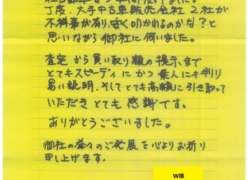 丁度、大手中古車販売会社 2社が
思いながら御社に伺いました。
査定から買い取り額の提示まで
とてもスピーディにかつ素人にも判り
易い説明、そしてとても高額に引き取って
いただきとても感謝です。
ありがとうございました。
御社の益々のご発展を心よりお祈り
申し上げます。
W様